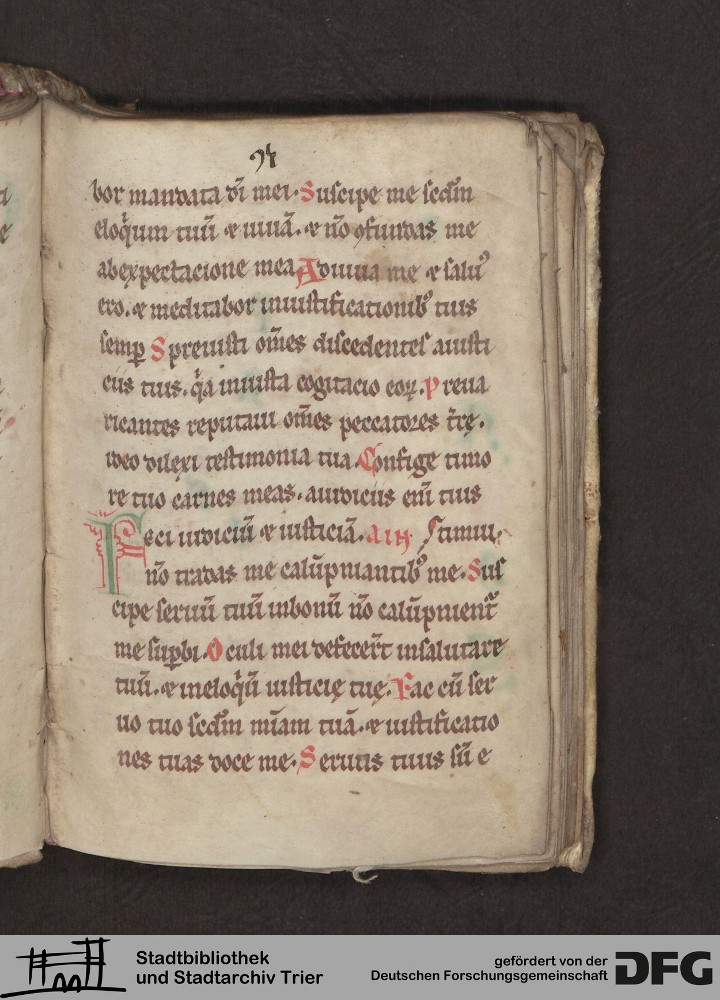 bor mandata dī mei. Suscipe me scd̄m
eloq̄ium tuū & uiuā. & nō ꝯfundas me
abexpectacione mea. Adiuua me & saluꝰ
ero. & meditabor iniustificationibꝰ tuis
semp̱ Spreuisti om̄es discedentes aiusti
ciis tuis. q̄a iniusta cogitacio eoꝝ. Preua
ricantes reputaui om̄es peccatores t̄rę.
ideo dilexi testimonia tua. Confige timo
re tuo carnes meas. aiudiciis eni̅ tuis
Feci iudiciū & iusticiā. timui.
nō tradas me calūpniantibꝰ me. Sus
cipe seruū tuū inbonū nō calūpnient̄
me sup̱bi. Oculi mei defecer̄t insalutare
tuū. & ineloq̄ū iusticię tuę. Fac cū ser
uo tuo scd̄m mīam tuā. & iustificatio
nes tuas doce me. Seruus tuus sū e
Stadtbibliothek
und Stadtarchiv Trier
gefördert von der
Deutschen Forschungsgemeinschaft DFG